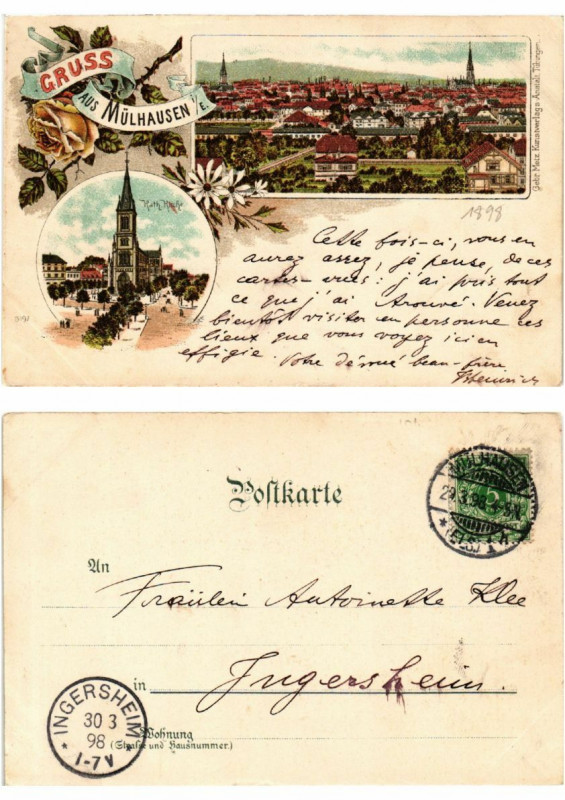 GRUSS
AUS MÜLHAUSEN i/E.
Kath. Kirche
Gebr. Metz, Kunstverlags-Anstalt, Tübingen.
1898
Cette fois-ci, vous en
aurez assez, je pense, de ces
cartes-vues: j'ai pris tout
ce que j'ai trouvé. Venez
bientôt visiter en personne ces
lieux que vous voyez ici en
effigie. Votre dévoué beau-frère
Heinrich
Postkarte
MÜLHAUSEN
29.3.98
* (ELS) 1
An
Fräulein Antoinette Klee
in Ingersheim.
INGERSHEIM
30 3
98
1-7V
Wohnung
(Straße und Hausnummer.)